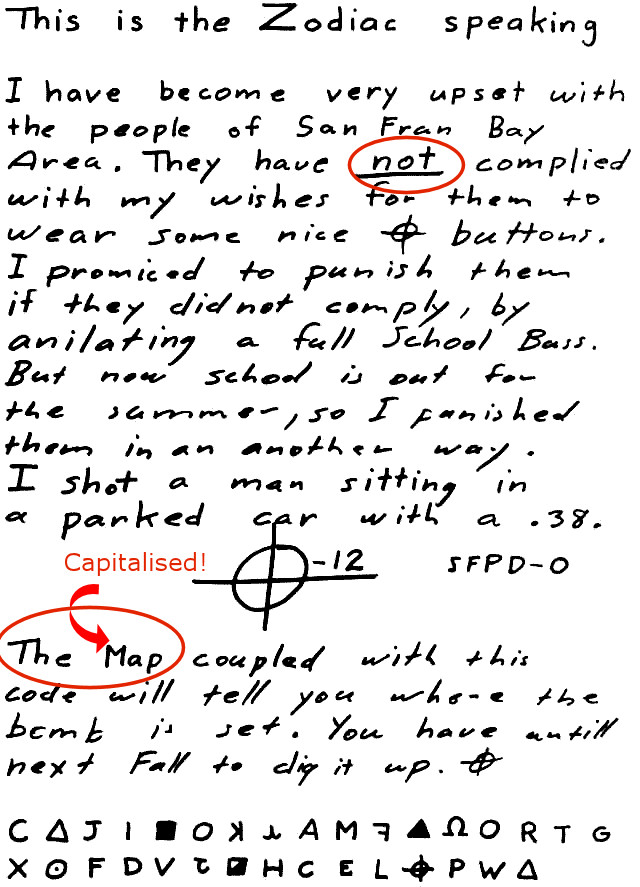 This is the Zodiac speaking
I have become very upset with
the people of San Fran Bay
Area. They have not complied
with my wishes for them to
wear some nice ⌖ buttons.
I promiced to punish them
if they did not comply, by
anilating a full School Buss.
But now school is out for
the summer, so I punished
them in an another way.
I shot a man sitting in
a parked car with a .38.
Capitalised!
⌖-12 SFPD-0
The Map coupled with this
code will tell you where the
bomb is set. You have untill
next Fall to dig it up. ⌖
C Δ J I ■ O ꓘ ⅄ A M ꟻ ▲ Ω O R T G
X ⊙ F D V ꞇ ◪ H C E L ⌖ P W Δ